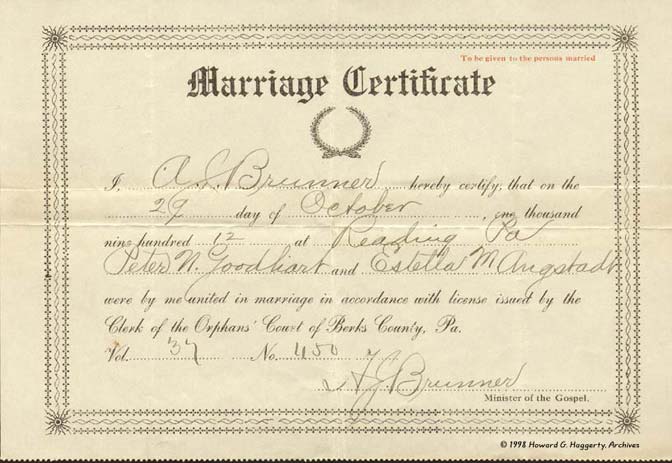 To be given to the persons married
Marriage Certificate
I, A. J. Brunner hereby certify, that on the
29 day of October, one thousand
nine hundred 12 at Reading Pa
Peter N. Goodhart and Estella M Angstadt
were by me united in marriage in accordance with license issued by the
Clerk of the Orphans' Court of Berks County, Pa.
Vol. 37 No. 450
A J Brunner
Minister of the Gospel.
© 1998 Howard G. Haggerty, Archives